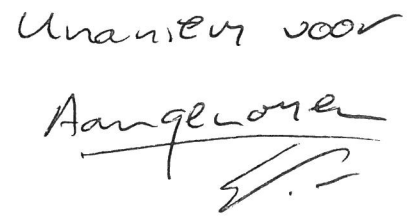 Unaniem voor
Aangenomen